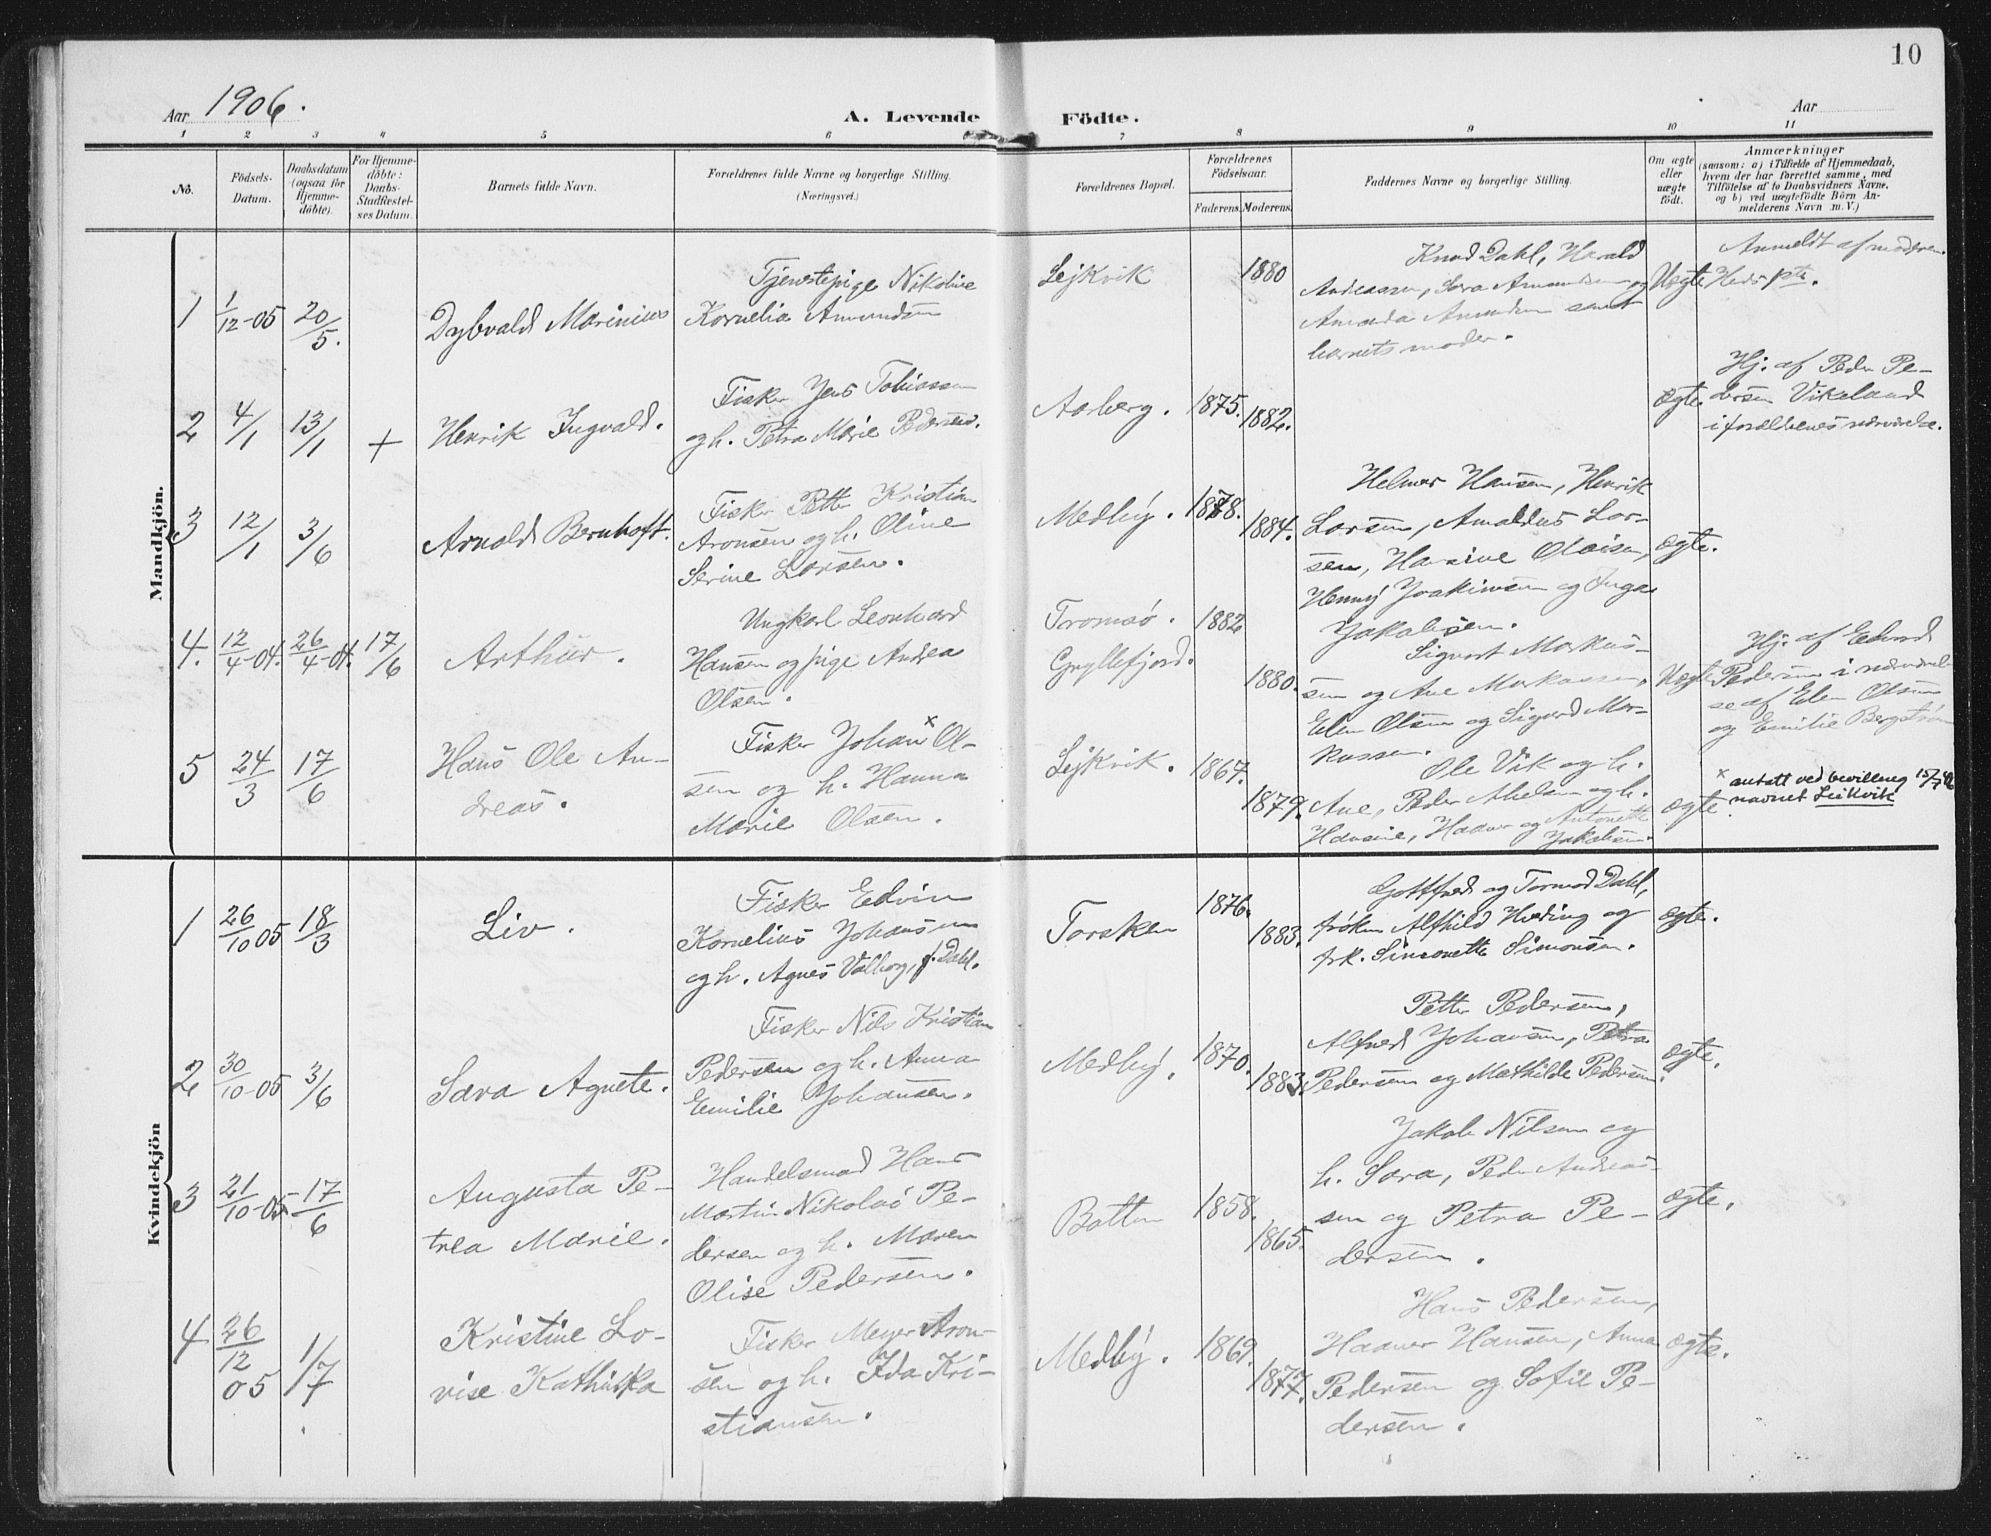 10
Aar 1906.
A. Levende Födte.
Aar
1 2 3 4 5 6 7 8 9 10 11
No.
Födsels-
Datum.
Daabsdatum
(ogsaa for
Hjemme-
döbte).
For Hjemme-
döbte:
Daabs-
Stadfæstel-
ses Datum.
Barnets fulde Navn.
Forældrenes fulde Navne og borgerlige Stilling.
(Næringsvei.)
Forældrenes Bopæl.
Forældrenes
Födselsaar.
Faderens. Moderens.
Faddernes Navne og borgerlige Stilling.
Om ægte
eller
uægte
födt.
Anmærkninger
(saasom: a) i Tilfælde af Hjemmedaab,
hvem der har forrettet samme, med
Tilföielse af to Daabsvidners Navne,
og b) ved uægtefödte Börn An-
melderens Navn m. V.)
Mandkjön.
1
1/12-05
20/5.
Dybvald Marinius
Tjenestepige Nikoline
Kornelia Amundsen
Lejkvik
1880
Knud Dahl, Harald
Andreassen, Sara Amundsen og
Amanda Amundsen samt
barnets moder.
Uægte
Anmeldt af moderen.
2
4/1
13/1
+
Henrik Ingvald.
Fisker Jens Tobiassen
og h. Petra Marie Pedersen.
Aarberg.
1875.
1882.
ægte.
Hj. af Peder Pe-
dersen Vikeland
i forældrenes nærværelse.
3
12/1
3/6
Arnold Bernhoft.
Fisker Petter Kristian
Aronsen og h. Oline
Serine Larsen.
Medby.
1878.
1884.
Helmer Hansen, Henrik
Larsen, Amaldus Lar-
sen, Hansine Olaisen,
Henny Joakimsen og Inga
Jakobsen.
ægte.
4.
12/4-04.
26/4-04.
17/6
Arthur.
Ungkarl Leonhard
Hansen og pige Andrea
Olsen.
Tromsø.
Gryllefjord.
1882
1880.
Sigvart Markus-
sen og Ane Markussen,
Elen Olsen og Sigurd Mar-
kussen.
Uægte
Hj. af Edvard
Pedersen i nærværel-
se af Elen Olsen
og Emilie Bergstrøm
5
24/3
17/6
Hans Ole An-
dreas.
Fisker Johan x Ol-
sen og h. Hanna
Marie Olsen.
Lejkvik.
1867.
1879.
Ole Vik og h.
Ane, Peder Abelsen og h.
Hansine, Haaver og Antonette
Jakobsen.
ægte
x antatt ved bevilling
navnet Leikvik
Kvindekjön
1
26/10 05
18/3
Liv.
Fisker Edvin
Kornelius Johansen
og h. Agnes Valborg, f. Dahl.
Torsken
1876.
1883.
Gottfred og Tormod Dahl,
frøken Alfhild Hveding og
frk. Simonette Simonsen.
ægte.
2
30/10-05
3/6
Sara Agnete.
Fisker Nils Kristian
Pedersen og h. Anna
Emilie Johansen.
Medby.
1870.
1883.
Petter Pedersen,
Alfred Johansen, Petra
Pedersen og Mathilde Pedersen.
ægte.
3
21/10-05
17/6
Augusta Pe-
trea Marie.
Handelsmand Hans
Martin Nikolai Pe-
dersen og h. Maren
Olise Pedersen.
Botten
1858.
1865.
Jakob Nilsen og
h. Sara, Peder Andreas-
sen og Petra Pe-
dersen.
ægte.
4
26/12 05
1/7
Kristine Lo-
vise Kathinka
Fisker Meyer Aron-
sen og h. Ida Kri-
stiansen.
Medby.
1869.
1877.
Hans Pedersen,
Haaver Hansen, Anna
Pedersen og Sofie Pe-
dersen.
ægte.